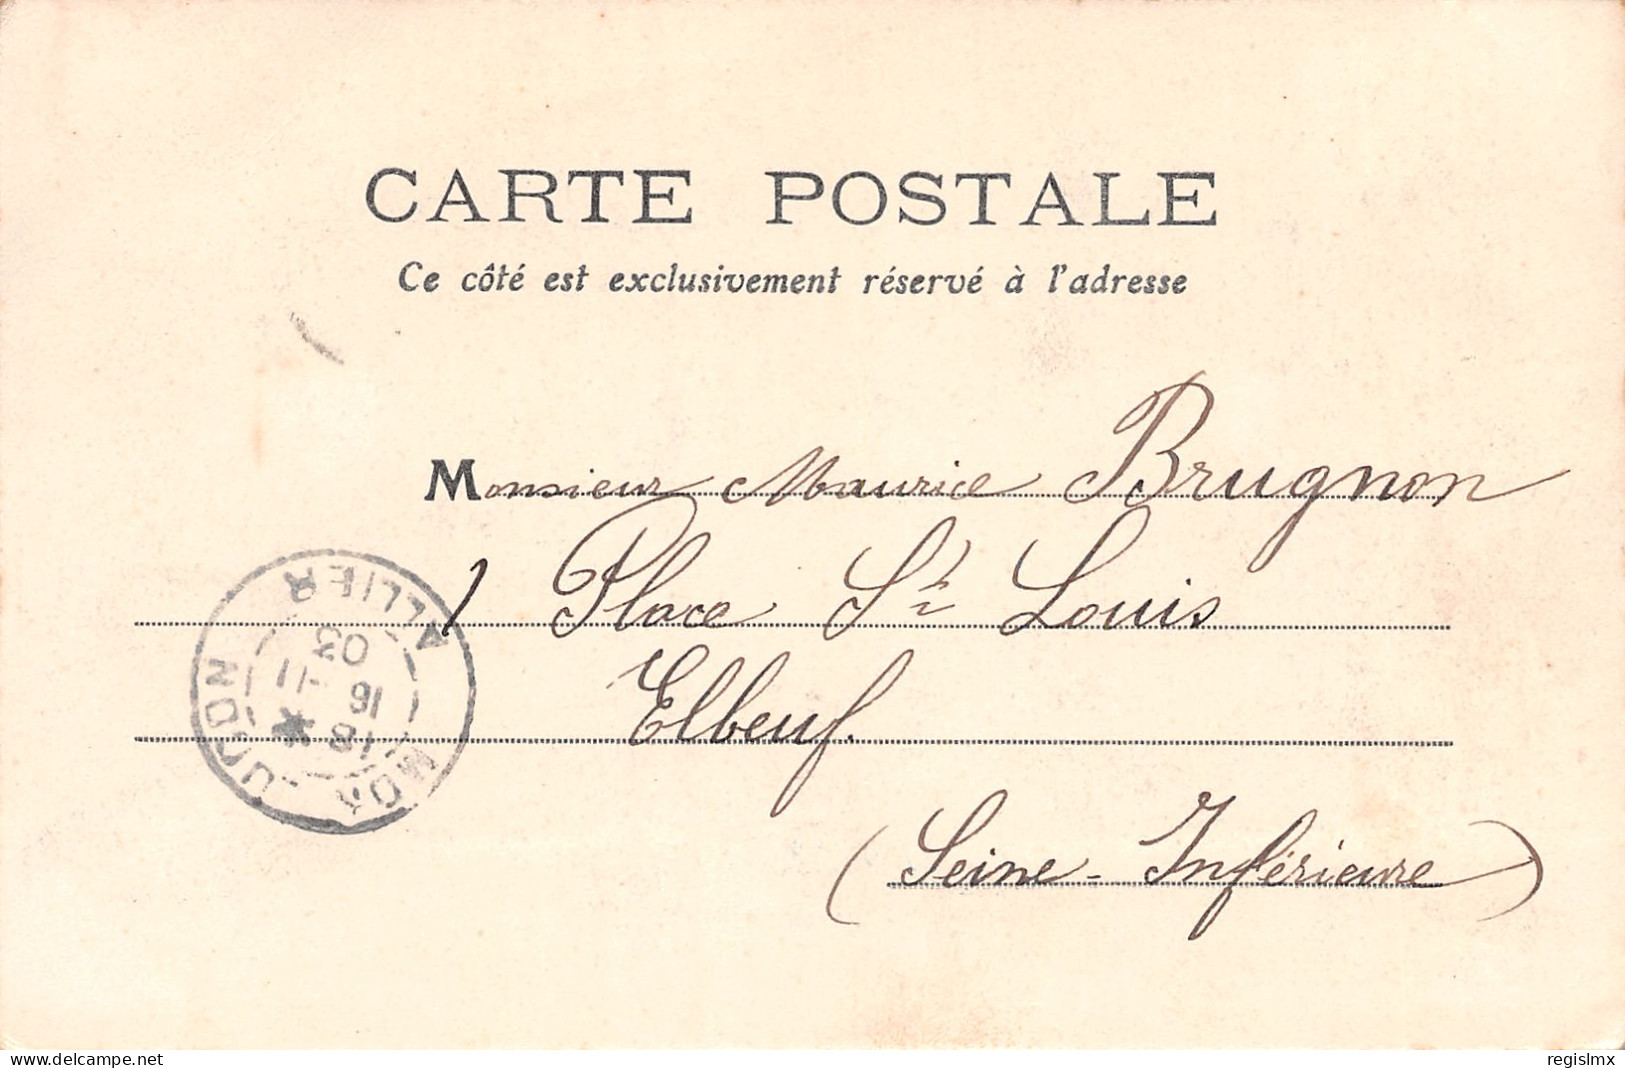 CARTE POSTALE
Ce côté est exclusivement réservé à l'adresse
Monsieur Maurice Brugnon
1 Place St Louis
Elbeuf.
(Seine-Inférieure)
ALLIER
18 *
16 -11
03
delcampe.net
regislmx